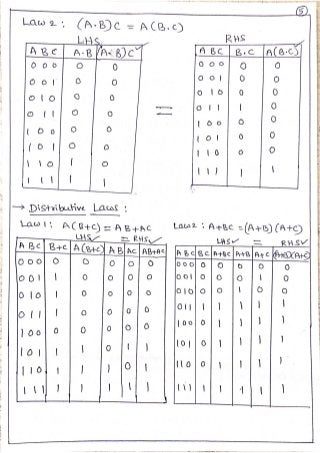 5
Law 2 : (A·B)C = A(B·C)
LHS RHS
A B C A·B (A·B)C✓ A B C B·C A(B·C)
0 0 0 0 0 0 0 0 0 0
0 0 1 0 0 0 0 1 0 0
0 1 0 0 0 0 1 0 0 0
0 1 1 0 0 = 0 1 1 1 0
1 0 0 0 0 1 0 0 0 0
1 0 1 0 0 1 0 1 0 0
1 1 0 1 0 1 1 0 0 0
1 1 1 1 1 1 1 1 1 1
→ Distributive Laws :
Law 1 : A(B+C) = AB+AC
LHS✓ = RHS✓
A B C B+C A(B+C) AB AC AB+AC
0 0 0 0 0 0 0 0
0 0 1 1 0 0 0 0
0 1 0 1 0 0 0 0
0 1 1 1 0 0 0 0
1 0 0 0 0 0 0 0
1 0 1 1 1 0 1 1
1 1 0 1 1 1 0 1
1 1 1 1 1 1 1 1
Law 2 : A+BC = (A+B)(A+C)
LHS✓ = RHS✓
A B C BC A+BC A+B A+C (A+B)(A+C)
0 0 0 0 0 0 0 0
0 0 1 0 0 0 1 0
0 1 0 0 0 1 0 0
0 1 1 1 1 1 1 1
1 0 0 0 1 1 1 1
1 0 1 0 1 1 1 1
1 1 0 0 1 1 1 1
1 1 1 1 1 1 1 1